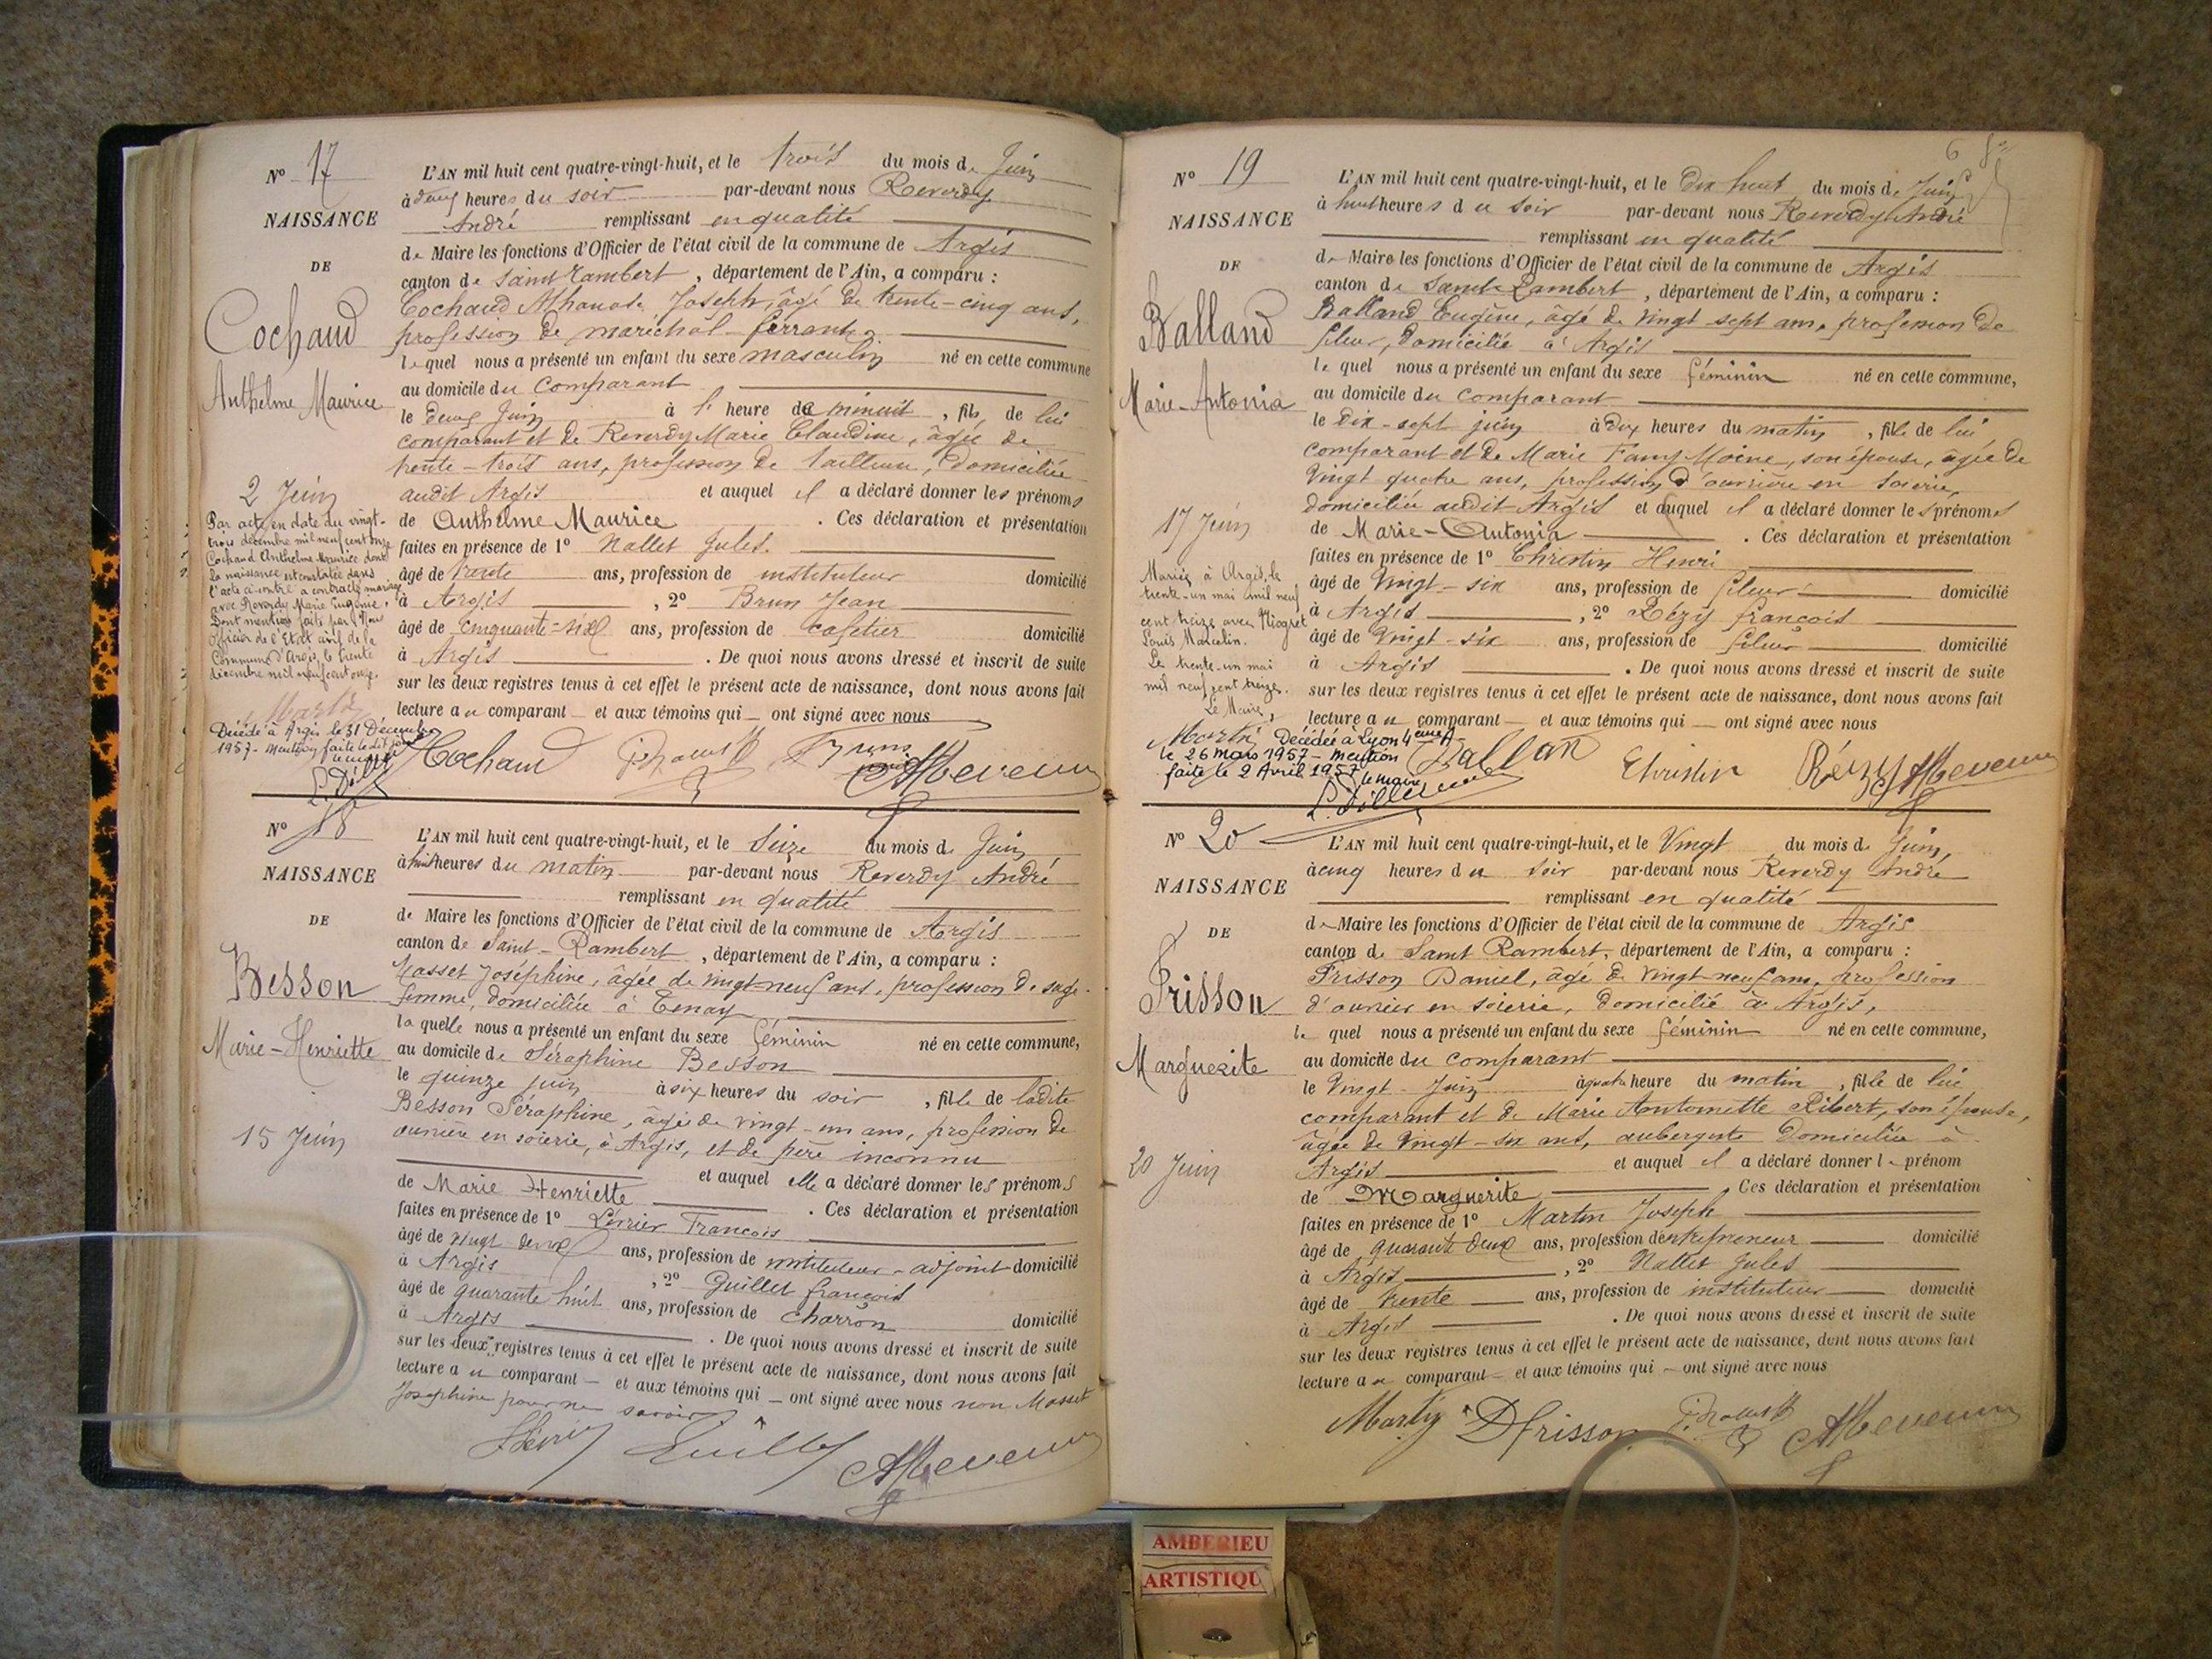 N° 17
NAISSANCE
DE
Cochaud
Anthelme Maurice
2 Juin
Par acte en date du vingt-
trois décembre mil neuf cent onze
Cochaud Anthelme Maurice dont
la naissance est constatée dans
l'acte ci-contre a contracté mariage
avec Reverdy Marie Eugénie.
Dont mention faite par Nous
Officier de l'Etat civil de la
Commune d'Argis, le trente
décembre mil neuf cent onze.
Martin
Décédé à Argis le 31 Décembre
1957 - Mention faite le dit jour
L'AN mil huit cent quatre-vingt-huit, et le trois du mois de Juin
à deux heures du soir par-devant nous Reverdy
André remplissant en qualité
de Maire les fonctions d'Officier de l'état civil de la commune de Argis
canton de Saint Rambert, département de l'Ain, a comparu :
Cochaud Athanase Joseph, âgé de trente-cinq ans,
profession de maréchal-ferrant
lequel nous a présenté un enfant du sexe masculin né en cette commune
au domicile du comparant
le deux Juin à l' heure de minuit, fils de lui
comparant et de Reverdy Marie Claudine, âgée de
trente-trois ans, profession de tailleuse, domiciliée
audit Argis et auquel il a déclaré donner les prénoms
de Anthelme Maurice. Ces déclaration et présentation
faites en présence de 1° Nallet Jules.
âgé de trente ans, profession de instituteur domicilié
à Argis, 2° Brun Jean
âgé de cinquante-six ans, profession de cafetier domicilié
à Argis. De quoi nous avons dressé et inscrit de suite
sur les deux registres tenus à cet effet le présent acte de naissance, dont nous avons fait
lecture au comparant et aux témoins qui ont signé avec nous
Cochaud Brun
N° 18
NAISSANCE
DE
Besson
Marie-Henriette
15 Juin
L'AN mil huit cent quatre-vingt-huit, et le Seize du mois de Juin
à huit heures du matin par-devant nous Reverdy André
remplissant en qualité
de Maire les fonctions d'Officier de l'état civil de la commune de Argis
canton de Saint-Rambert, département de l'Ain, a comparu :
Masset Joséphine, âgée de vingt-neuf ans, profession de sage-
femme, domiciliée à Tenay
laquelle nous a présenté un enfant du sexe féminin né en cette commune,
au domicile de Séraphine Besson
le quinze juin à six heures du soir, fille de ladite
Besson Séraphine, âgée de vingt-un ans, profession de
ouvrière en soierie, à Argis, et de père inconnu
et auquel elle a déclaré donner les prénoms
de Marie Henriette. Ces déclaration et présentation
faites en présence de 1° François
âgé de vingt deux ans, profession de instituteur-adjoint domicilié
à Argis, 2° Guillet François
âgé de quarante huit ans, profession de charron domicilié
à Argis. De quoi nous avons dressé et inscrit de suite
sur les deux registres tenus à cet effet le présent acte de naissance, dont nous avons fait
lecture au comparant et aux témoins qui ont signé avec nous non Masset
Joséphine pour ne savoir.
6
N° 19
NAISSANCE
DE
Balland
Marie-Antonia
17 Juin
Mariée à Argis, le
trente-un mai mil neuf
cent treize avec Niogret
Louis Marcelin.
Le trente-un mai
mil neuf cent treize.
Le Maire,
Martin
Décédée à Lyon 4ème A
le 26 mars 1957 - Mention
faite le 2 Avril 1957
le maire
L'AN mil huit cent quatre-vingt-huit, et le Dix huit du mois de Juin
à huit heures du soir par-devant nous Reverdy André
remplissant en qualité
de Maire les fonctions d'Officier de l'état civil de la commune de Argis
canton de Saint-Rambert, département de l'Ain, a comparu :
Balland Eugène, âgé de vingt sept ans, profession de
fileur, domicilié à Argis
lequel nous a présenté un enfant du sexe féminin né en cette commune,
au domicile du comparant
le dix-sept juin à dix heures du matin, fille de lui
comparant et de Marie Fany Moine, son épouse, âgée de
vingt quatre ans, profession d'ouvrière en soierie,
domiciliée audit Argis et auquel il a déclaré donner les prénoms
de Marie-Antonia. Ces déclaration et présentation
faites en présence de 1° Christin Henri
âgé de vingt-six ans, profession de fileur domicilié
à Argis, 2° Rézy François
âgé de vingt-six ans, profession de fileur domicilié
à Argis. De quoi nous avons dressé et inscrit de suite
sur les deux registres tenus à cet effet le présent acte de naissance, dont nous avons fait
lecture au comparant et aux témoins qui ont signé avec nous
Balland Christin Rézy
N° 20
NAISSANCE
DE
Frisson
Marguerite
20 Juin
L'AN mil huit cent quatre-vingt-huit, et le Vingt du mois de Juin,
à cinq heures du soir par-devant nous Reverdy André
remplissant en qualité
de Maire les fonctions d'Officier de l'état civil de la commune de Argis
canton de Saint Rambert, département de l'Ain, a comparu :
Frisson Daniel, âgé de vingt-neuf ans, profession
d'ouvrier en soierie, domicilié à Argis,
lequel nous a présenté un enfant du sexe féminin né en cette commune,
au domicile du comparant
le vingt Juin à quatre heure du matin, fille de lui
comparant et de Marie Antoinette Ribert, son épouse,
âgée de vingt-six ans, aubergiste domiciliée à
Argis et auquel il a déclaré donner le prénom
de Marguerite. Ces déclaration et présentation
faites en présence de 1° Martin Joseph
âgé de quarante deux ans, profession d'entrepreneur domicilié
à Argis, 2° Nallet Jules
âgé de trente ans, profession de instituteur domicilié
à Argis. De quoi nous avons dressé et inscrit de suite
sur les deux registres tenus à cet effet le présent acte de naissance, dont nous avons fait
lecture au comparant et aux témoins qui ont signé avec nous
Martin DFrisson
AMBERIEU
ARTISTIQU